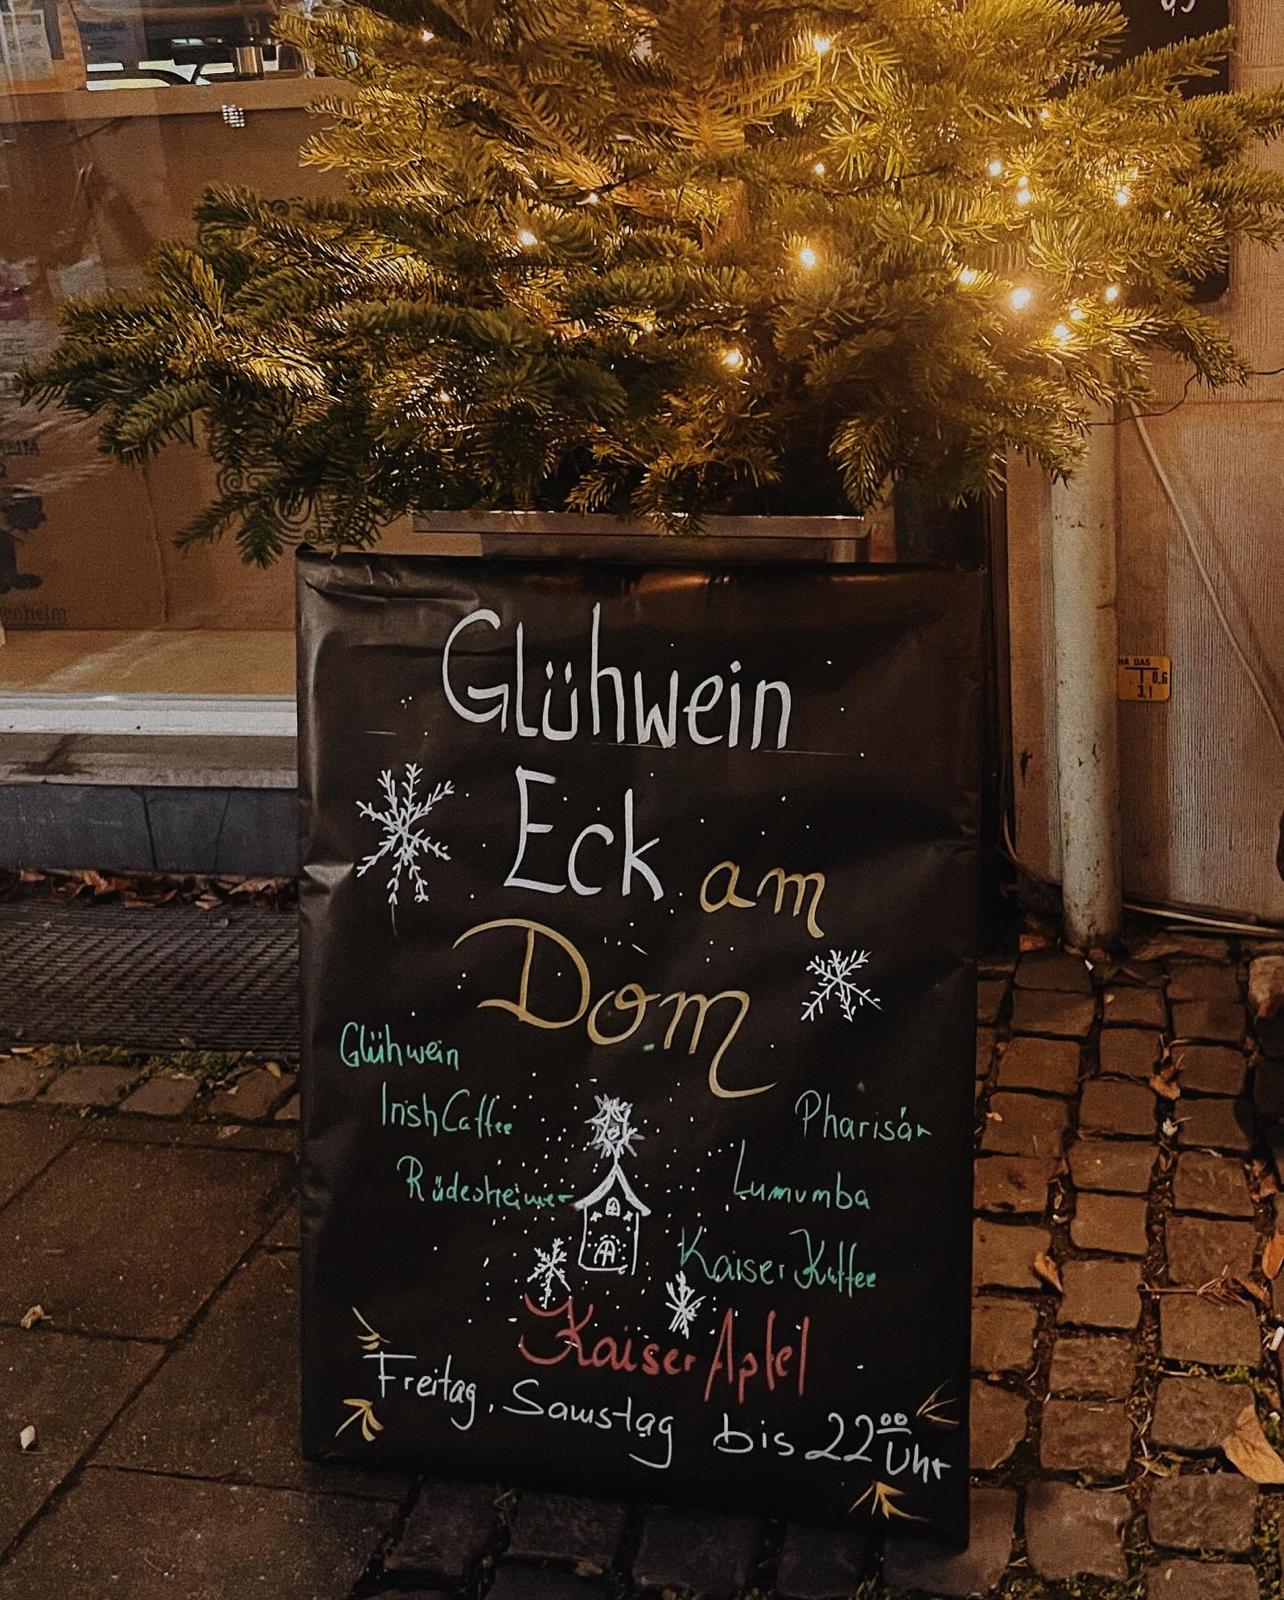 Glühwein
Eck am
Dom
Glühwein
Irish Caffee
Rüdesheimer
Pharisär
Lumumba
Kaiser Kaffee
Kaiser Apfel
Freitag, Samstag bis 22⁰⁰ Uhr
HA GAS
1 0,6
3,1
enheim